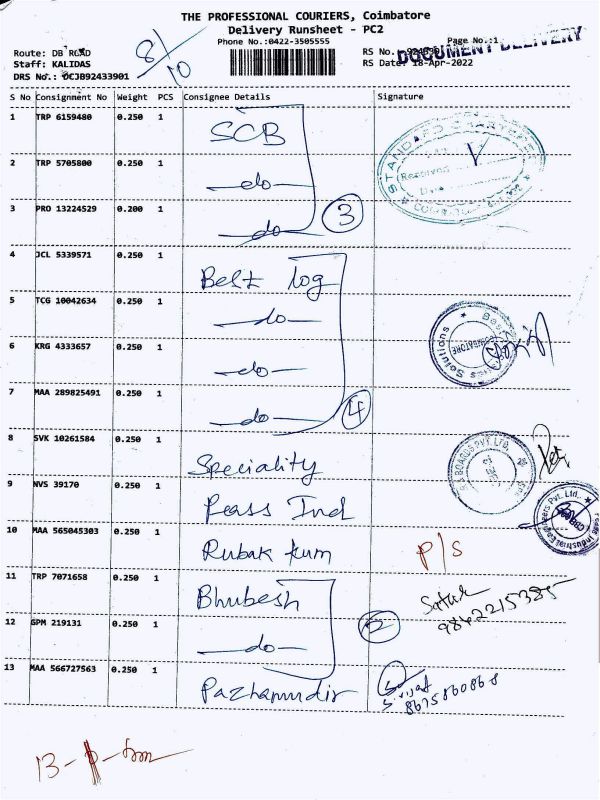 THE PROFESSIONAL COURIERS, Coimbatore
Delivery Runsheet - PC2
Phone No.:0422-3505555
Page No.:1
Route: DB ROAD
Staff: KALIDAS
DRS No.: OCJB92433901
RS No.
RS Date: 18-Apr-2022
DOCUMENT DELIVERY
8/10
S No Consignment No Weight PCS Consignee Details Signature
1 TRP 6159480 0.250 1 SCB
STANDARD CHARTERED
Received
Date
2 TRP 5705800 0.250 1 —do—
3 PRO 13224529 0.200 1 —do— 3
4 JCL 5339571 0.250 1 Best log
5 TCG 10042634 0.250 1 —do—
6 KRG 4333657 0.250 1 —do—
7 MAA 289825491 0.250 1 —do— 4
8 SVK 10261584 0.250 1 Speciality
BOARDS PVT. LTD.
9 NVS 39170 0.250 1 Peass Ind
10 MAA 565045303 0.250 1 Rubak
P/S
11 TRP 7071658 0.250 1 Bhubesh
9842215385
12 GPM 219131 0.250 1 —do— 2
13 MAA 566727563 0.250 1 Pazhamudir
8675860868
13 -